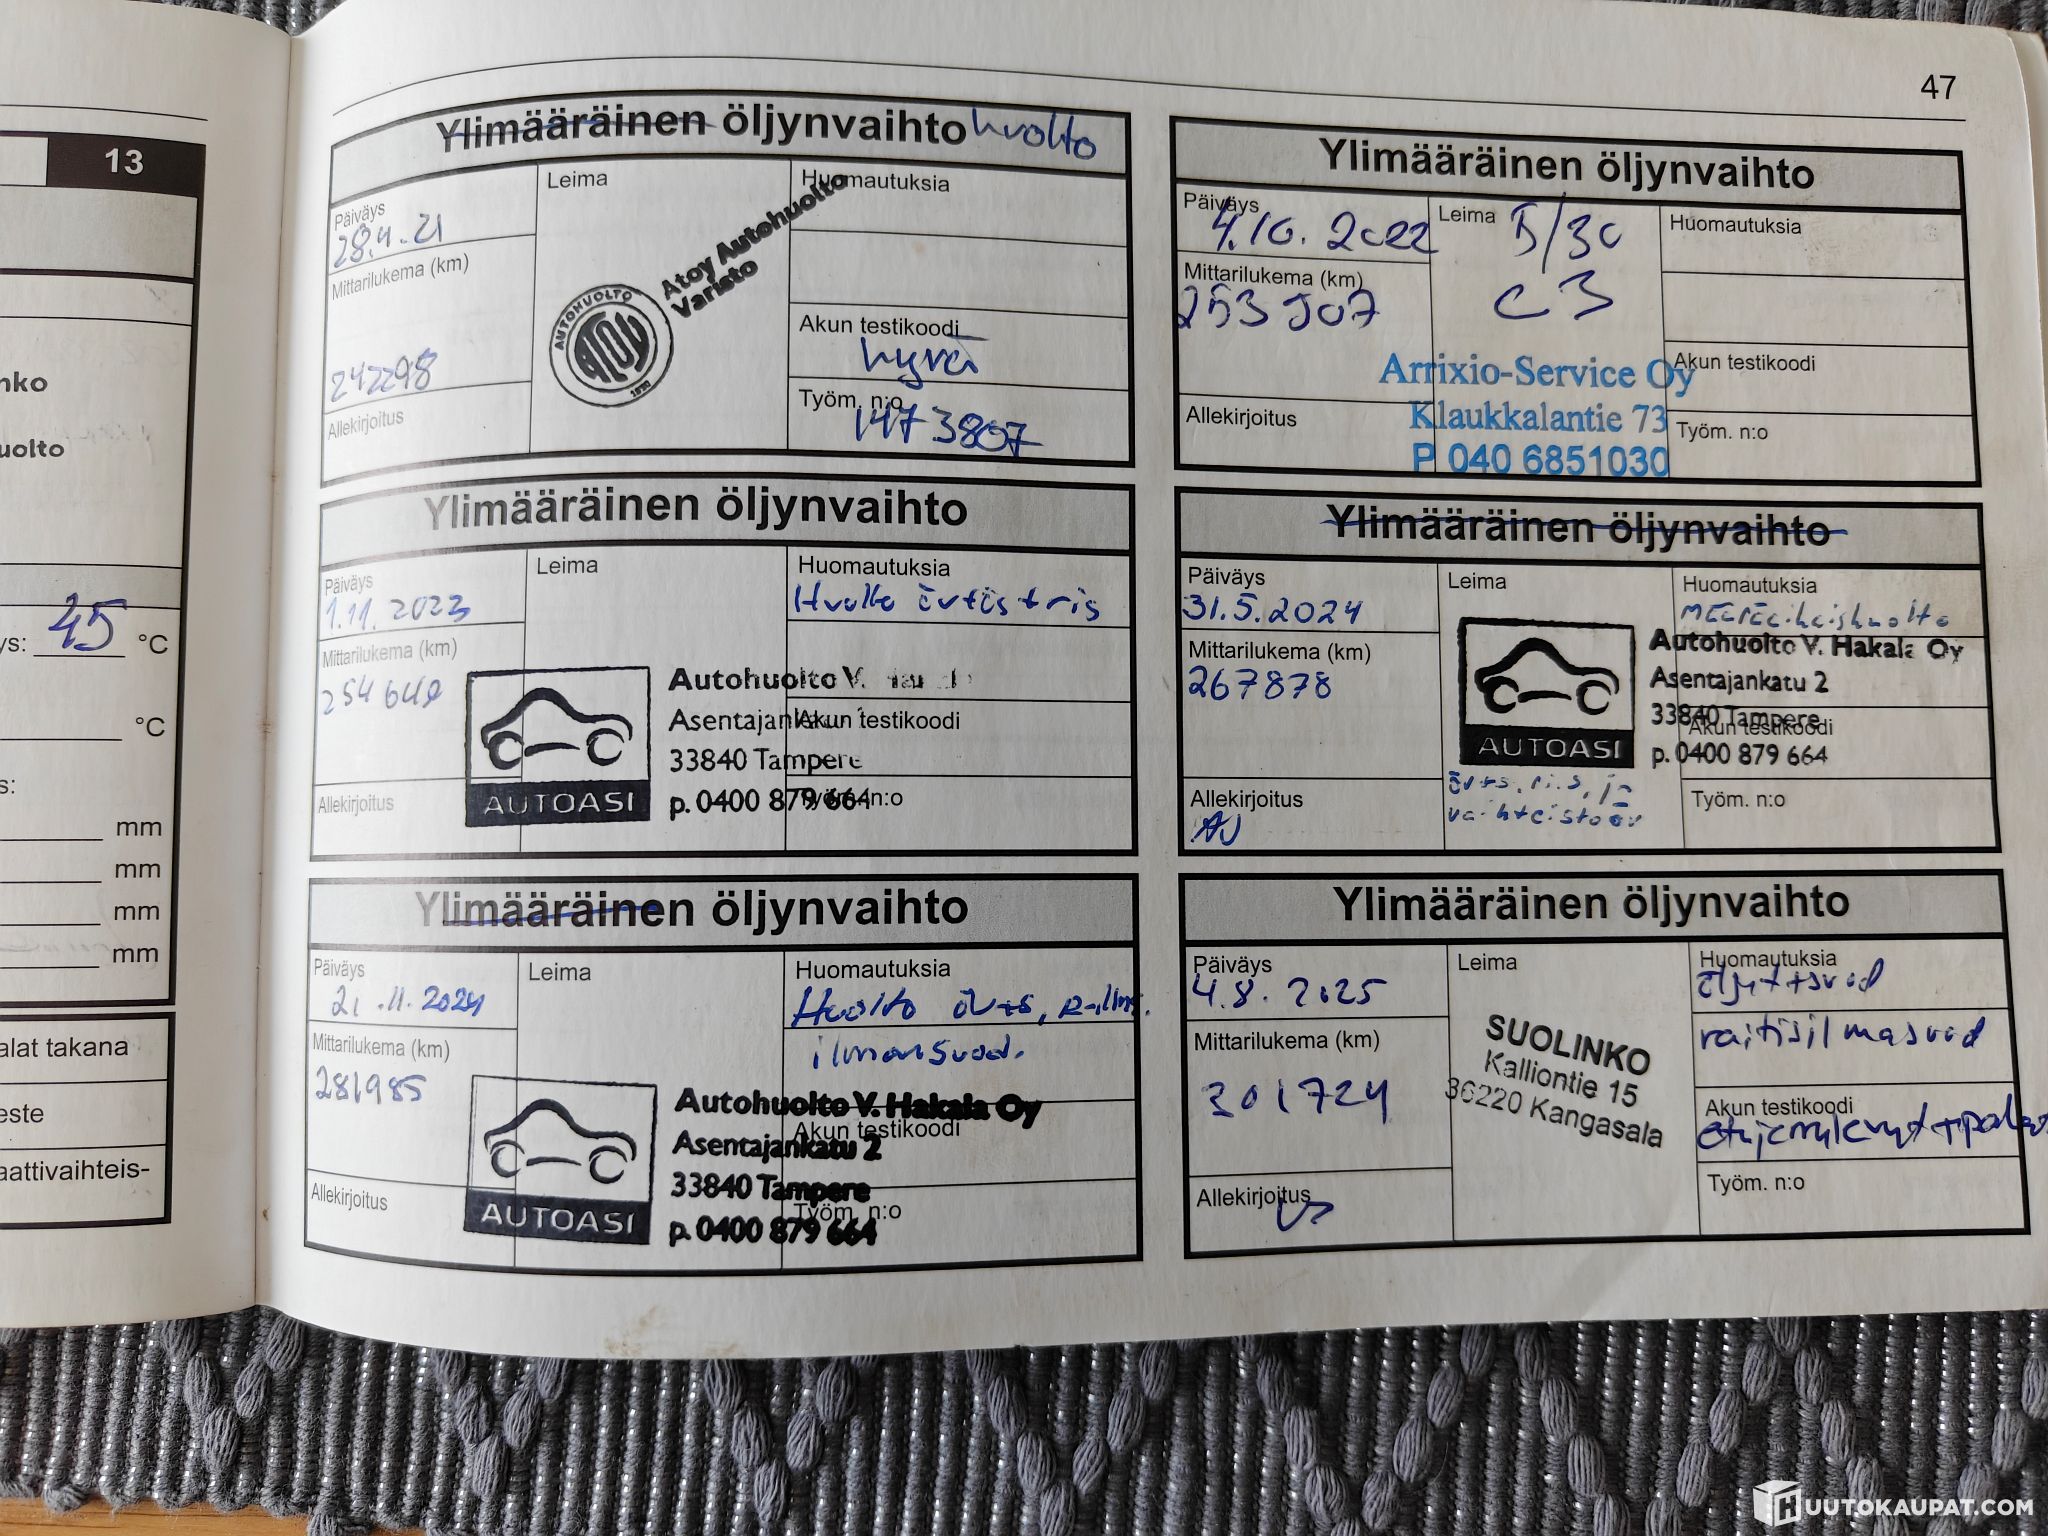 47
13
nko
uolto
ys: 45 °C
°C
s:
mm
mm
mm
mm
alat takana
este
aattivaihteis-
Ylimääräinen öljynvaihto huolto
Päiväys
28.4.21
Mittarilukema (km)
242298
Allekirjoitus
Leima
AUTOHUOLTO
ATOY
Atoy Autohuolto
Varisto
Huomautuksia
Akun testikoodi
hyvä
Työm. n:o
1473807
Ylimääräinen öljynvaihto
Päiväys
4.10.2022
Mittarilukema (km)
253907
Allekirjoitus
Leima
5/30
C3
Arrixio-Service Oy
Klaukkalantie 73
P 040 6851030
Huomautuksia
Akun testikoodi
Työm. n:o
Ylimääräinen öljynvaihto
Päiväys
1.11.2023
Mittarilukema (km)
254640
Allekirjoitus
Leima
AUTOASI
Autohuolto V.
Asentajankatu
33840 Tampere
p. 0400 879 664
Huomautuksia
Akun testikoodi
Työm. n:o
Ylimääräinen öljynvaihto
Päiväys
31.5.2024
Mittarilukema (km)
267878
Allekirjoitus
AJ
Leima
AUTOASI
Autohuolto V. Hakala Oy
Asentajankatu 2
33840 Tampere
p. 0400 879 664
Huomautuksia
Akun testikoodi
Työm. n:o
Ylimääräinen öljynvaihto
Päiväys
21.11.2024
Mittarilukema (km)
281985
Allekirjoitus
Leima
AUTOASI
Autohuolto V. Hakala Oy
Asentajankatu 2
33840 Tampere
p. 0400 879 664
Huomautuksia
Huolto
ilmansuod.
Akun testikoodi
Työm. n:o
Ylimääräinen öljynvaihto
Päiväys
4.8.2025
Mittarilukema (km)
301724
Allekirjoitus
Leima
SUOLINKO
Kalliontie 15
36220 Kangasala
Huomautuksia
öljyt+suod
raitisilmasuod
Akun testikoodi
Työm. n:o
HUUTOKAUPAT.COM